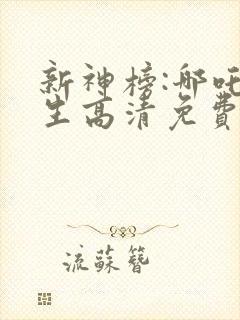 新神榜:哪吒
生高清免费
流蘇簪